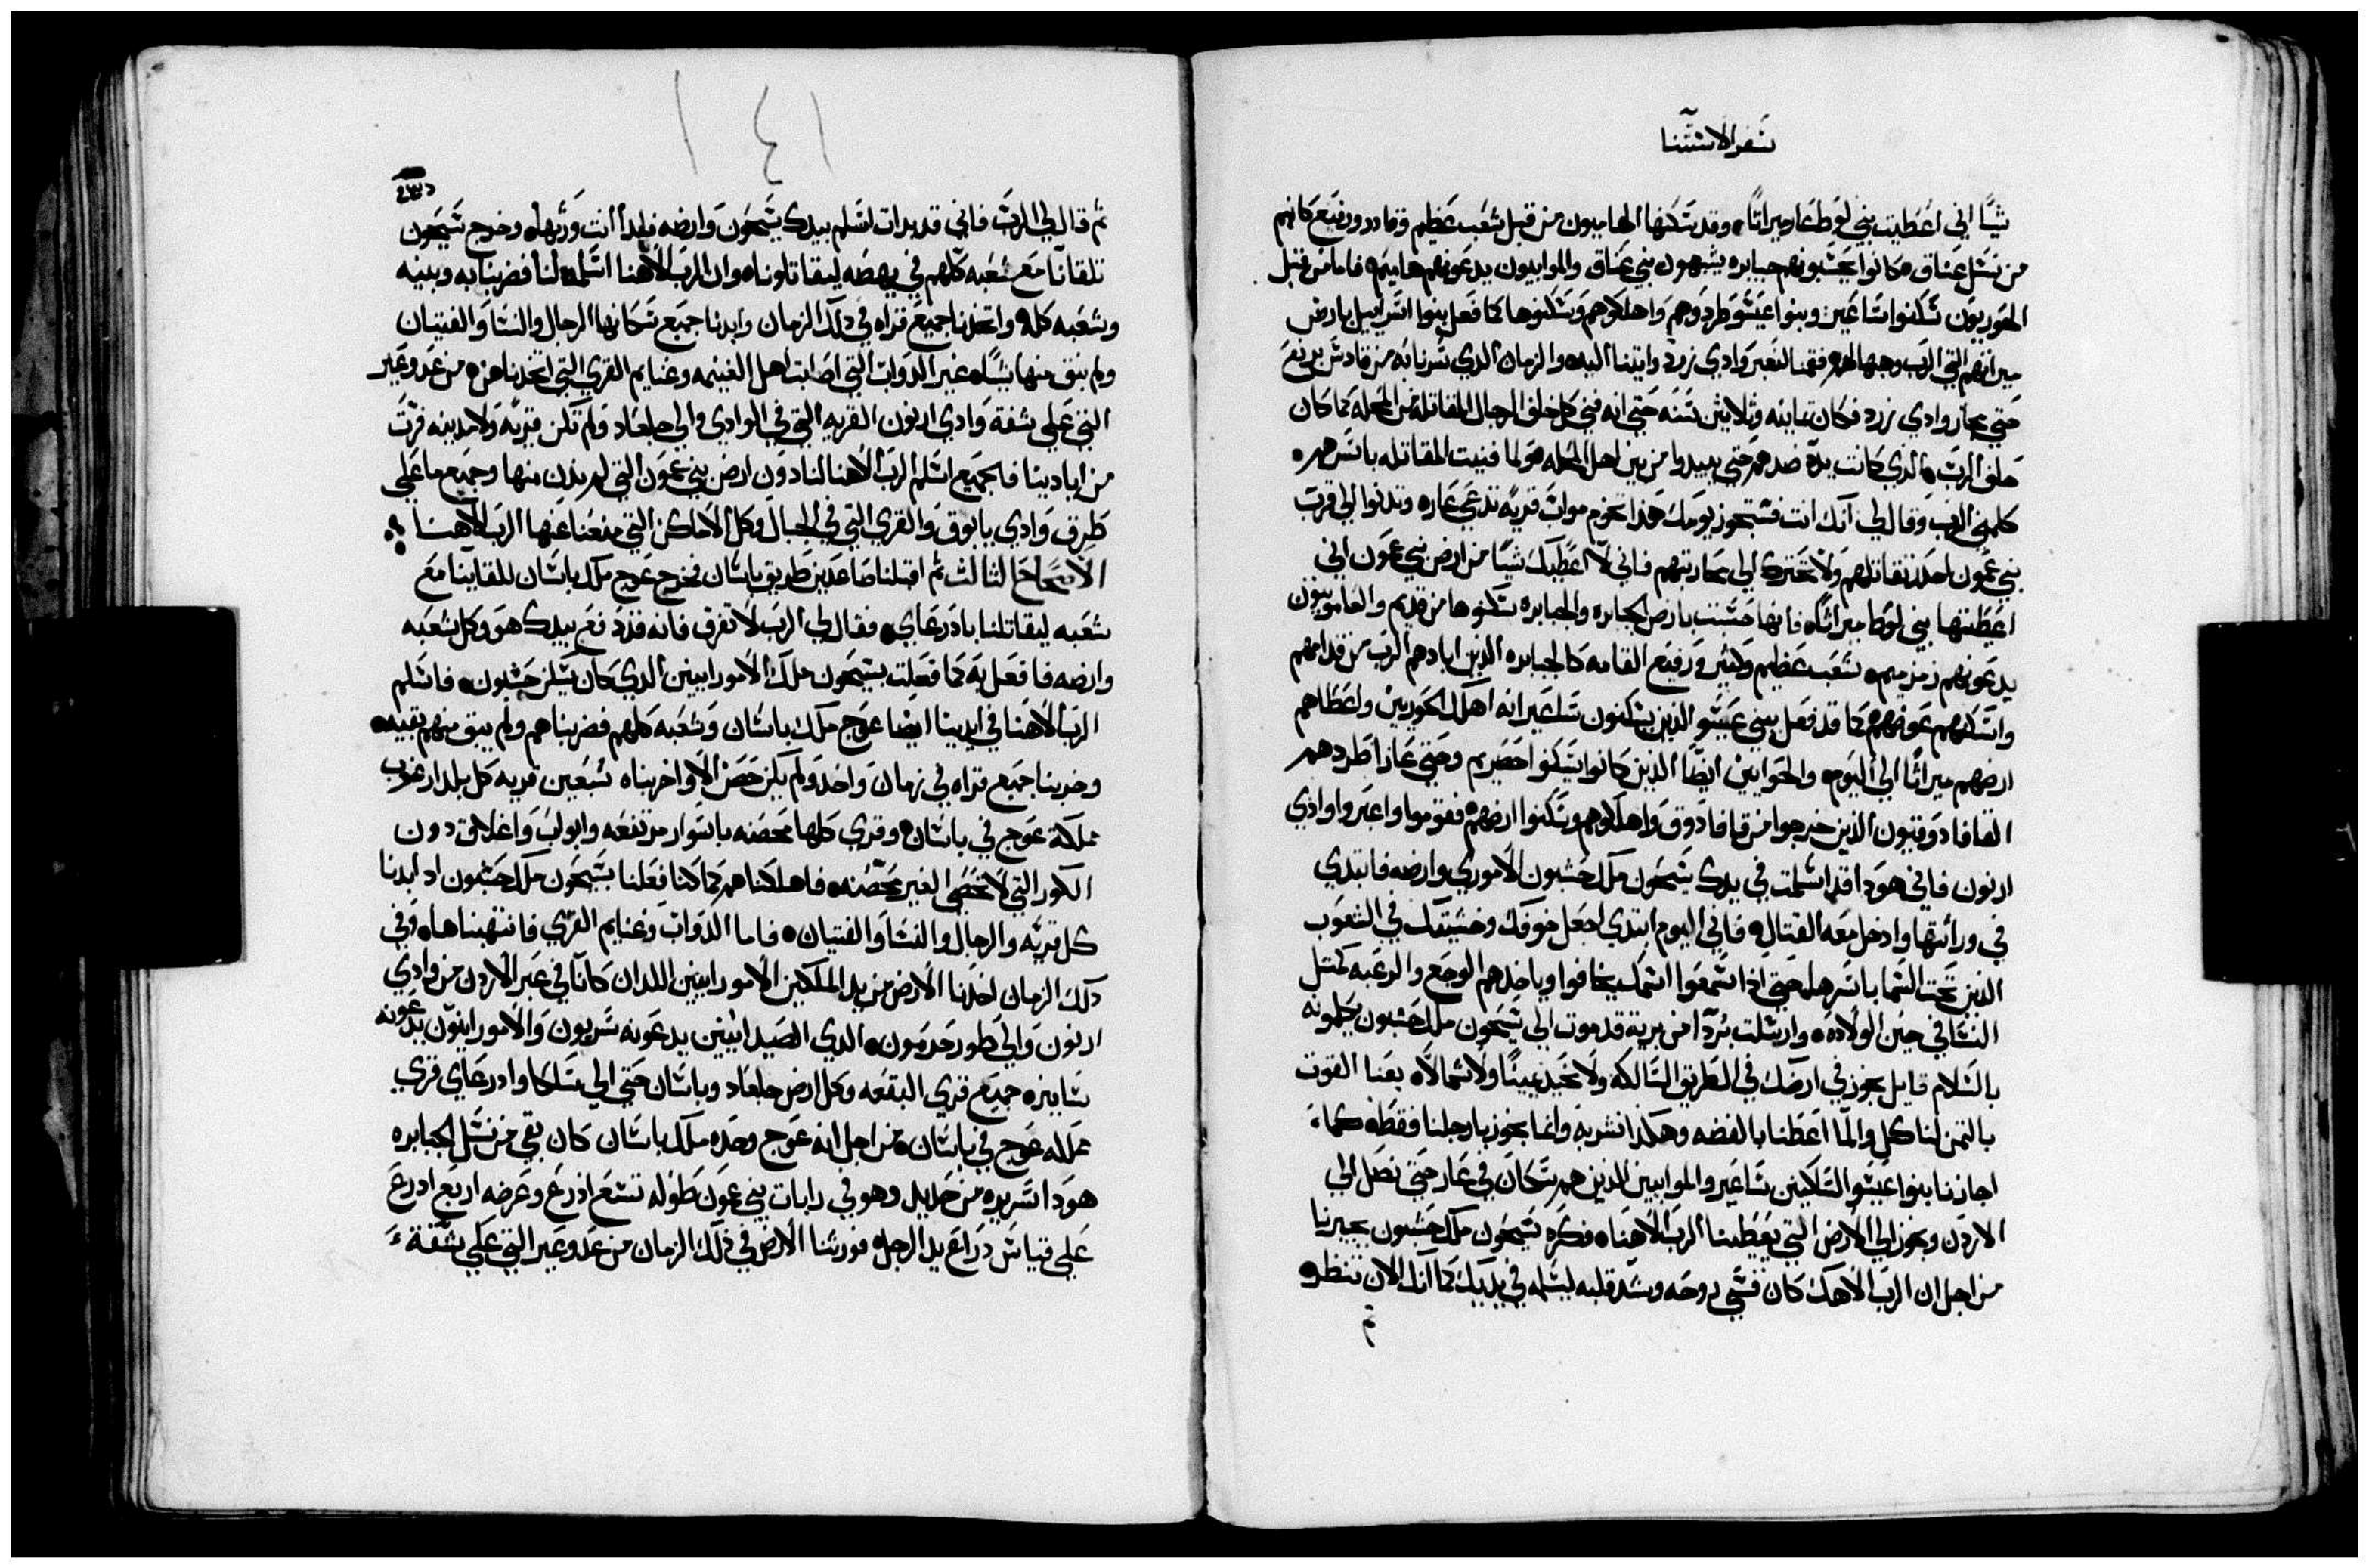 سفر الاستثنا
شيًا اني اعطيت بني لوط عار ميراثًا وقد سكنها الهاميون من قبل شعب عظيم وقادر ورفيع كانهم
من نسل عناق كانوا يحسبونهم جبابره يشبهون بني عناق والموابيون يدعونهم هاميم فاما من قبل
الحوريون سكنوا ساعير وبنوا عيسو طردوهم واهلكوهم وسكنوها كما فعل بنوا اسراييل بارض
ميراثهم التي الرب وهبها لهم فقمنا لنعبر وادي زرد واتينا اليه والزمان الدي سرنا به من قادش برنيع
حتي عبار وادي زرد فكان تمانيه وثلاثين سنه حتي انه فني كل خلف الرجال المقاتله من المحله كما كان
حلف الرب الدي كانت يده ضدهم حتي يبيدوا من بين اهل المحله ولما فنيت المقاتله باسرهم
كلمني الرب وقال لي انك انت فستجوز يومك هدا تخوم مواب قريه تدعي عاره وتدنوا الي قرب
بني عمون احدر تقاتلهم ولا تحترك الي محاربتهم فاني لا اعطيك شيًا من ارض بني عمون اني
اعطيتها بني لوط ميراثًا فانها حسبت بارض الجبابره والجبابره سكنوها من قديم والعامونيون
يدعونهم زمزميم شعب عظيم وكثير ورفيع القامه كالجبابره الذين ابادهم الرب من قدامهم
واسكنهم عوضهم كما قد فعل ببني عيسو الذين يسكنون ساعير انه اهلك الحوريين واعطاهم
ارضهم ميراثًا الي اليوم والحوايين ايضًا الذين كانوا يسكنوا حصيريم وحتي عازا طردهم
القافادوقيون الذين خرجوا من قافادوق واهلكوهم وسكنوا ارضهم فقوموا واعبروا وادي
ارنون فاني هودا قد اسلمت في يدك سيحون ملك حشبون الاموري وارضه فابتدي
في وراثتها وادخل معه القتال فاني اليوم ابتدي اجعل خوفك وخشيتك في الشعوب
الذين تحت السما باسرها حتي ادا سمعوا اسمك يخافوا وياخدهم الوجع والرعبه كمتل
النسا في حين الولاده وارسلت بردًا من برية قدموت الي سيحون ملك حشبون بكلمونه
بالسلام قايل نجوز في ارضك في الطريق السالكه ولا نحيد يمينًا ولا شمالا بعنا القوت
بالتمن لناكل والما اعطنا بالفضه وهكدا نشربه وانما نجوز بارجلنا فقط كما
اجازنا بنوا عيسو الساكنين ساعير والموابيين الذين هم سكان في عار حتي نصل الي
الاردن ونجوز الي الارض التي يعطينا الرب الاهنا فكره سيحون ملك حشبون يجيزنا
من اجل ان الرب الاهك كان قسي روحه وشد قلبه ليسلمه في يديك كما انك الان تنظر
ثم
١٤١
ثم قال لي الرب فاني قد بدات اسلم بيدك سيحون وارضه فابدا انت ورثها وخرج سيحون
تلقانا مع شعبه كلهم في يهصه ليقاتلونا وان الرب الاهنا اسلمه لنا فضربنا به وبنيه
وشعبه كله واتخدنا جميع قراه في دلك الزمان وابدنا جميع سكانها الرجال والنسا والفتيان
ولم نبق منها شيًا غير الدواب التي اصابت اهل الغنيمه وغنايم القري التي اتخدناهن من عدوعير
التي علي شفة وادي ارنون القريه التي في الوادي والي جلعاد ولم تكن قريه ولا مدينه فرت
من ايادينا فالجميع اسلم الرب الاهنا لنا دون ارض بني عمون التي لم ندن منها وجميع ما علي
طرق وادي يابوق والقري التي في الجبال وكل الاماكن التي منعنا عنها الرب الاهنا
الاصحاح الثالث ثم اقبلنا صاعدين طريق باشان فخرج عوج ملك باشان للقاينا مع
شعبه ليقاتلنا بادرعاي فقال لي الرب لا تفرق فانه قد دفع بيدك هو وكل شعبه
وارضه فافعل به كما فعلت بسيحون ملك الامورانيين الدي كان يسكن حشبون فاسلم
الرب الاهنا في ايدينا ايضا عوج ملك باشان وشعبه كلهم فضربناهم ولم يبق منهم بقيه
وخربنا جميع قراه في زمان واحد ولم يكن حصن الا واخربناه ستين قريه كل بلد ارغوب
مملكة عوج في باشان وقري كلها محصنه باسوار مرتفعه وابواب واغلاق دون
الكور التي لا تحصي الغير محصنه فاهلكناهم كما كنا فعلنا بسيحون ملك حشبون اد ابدنا
كل قريه والرجال والنسا والفتيان فاما الدواب وغنايم القري فانتهبناها وفي
دلك الزمان اخدنا الارض من يد الملكين الامورانيين اللدان كانا في عبر الاردن من وادي
ارنون والي طور حرمون الدي الصيدانيين يدعونه سريون والامورانيون يدعونه
سانير جميع قري البقعه وكل ارض جلعاد وباشان حتي الي سلكا وادرعاي قري
مملكه عوج في باشان من اجل انه عوج وحده ملك باشان كان بقي من نسل الجبابره
هودا سريره من حديد وهو في رابات بني عمون طوله تسع ادرع وعرضه اربع ادرع
علي قياس دراع يد الرجل فورثنا الارض في ذلك الزمان من عدوعير التي علي شفة